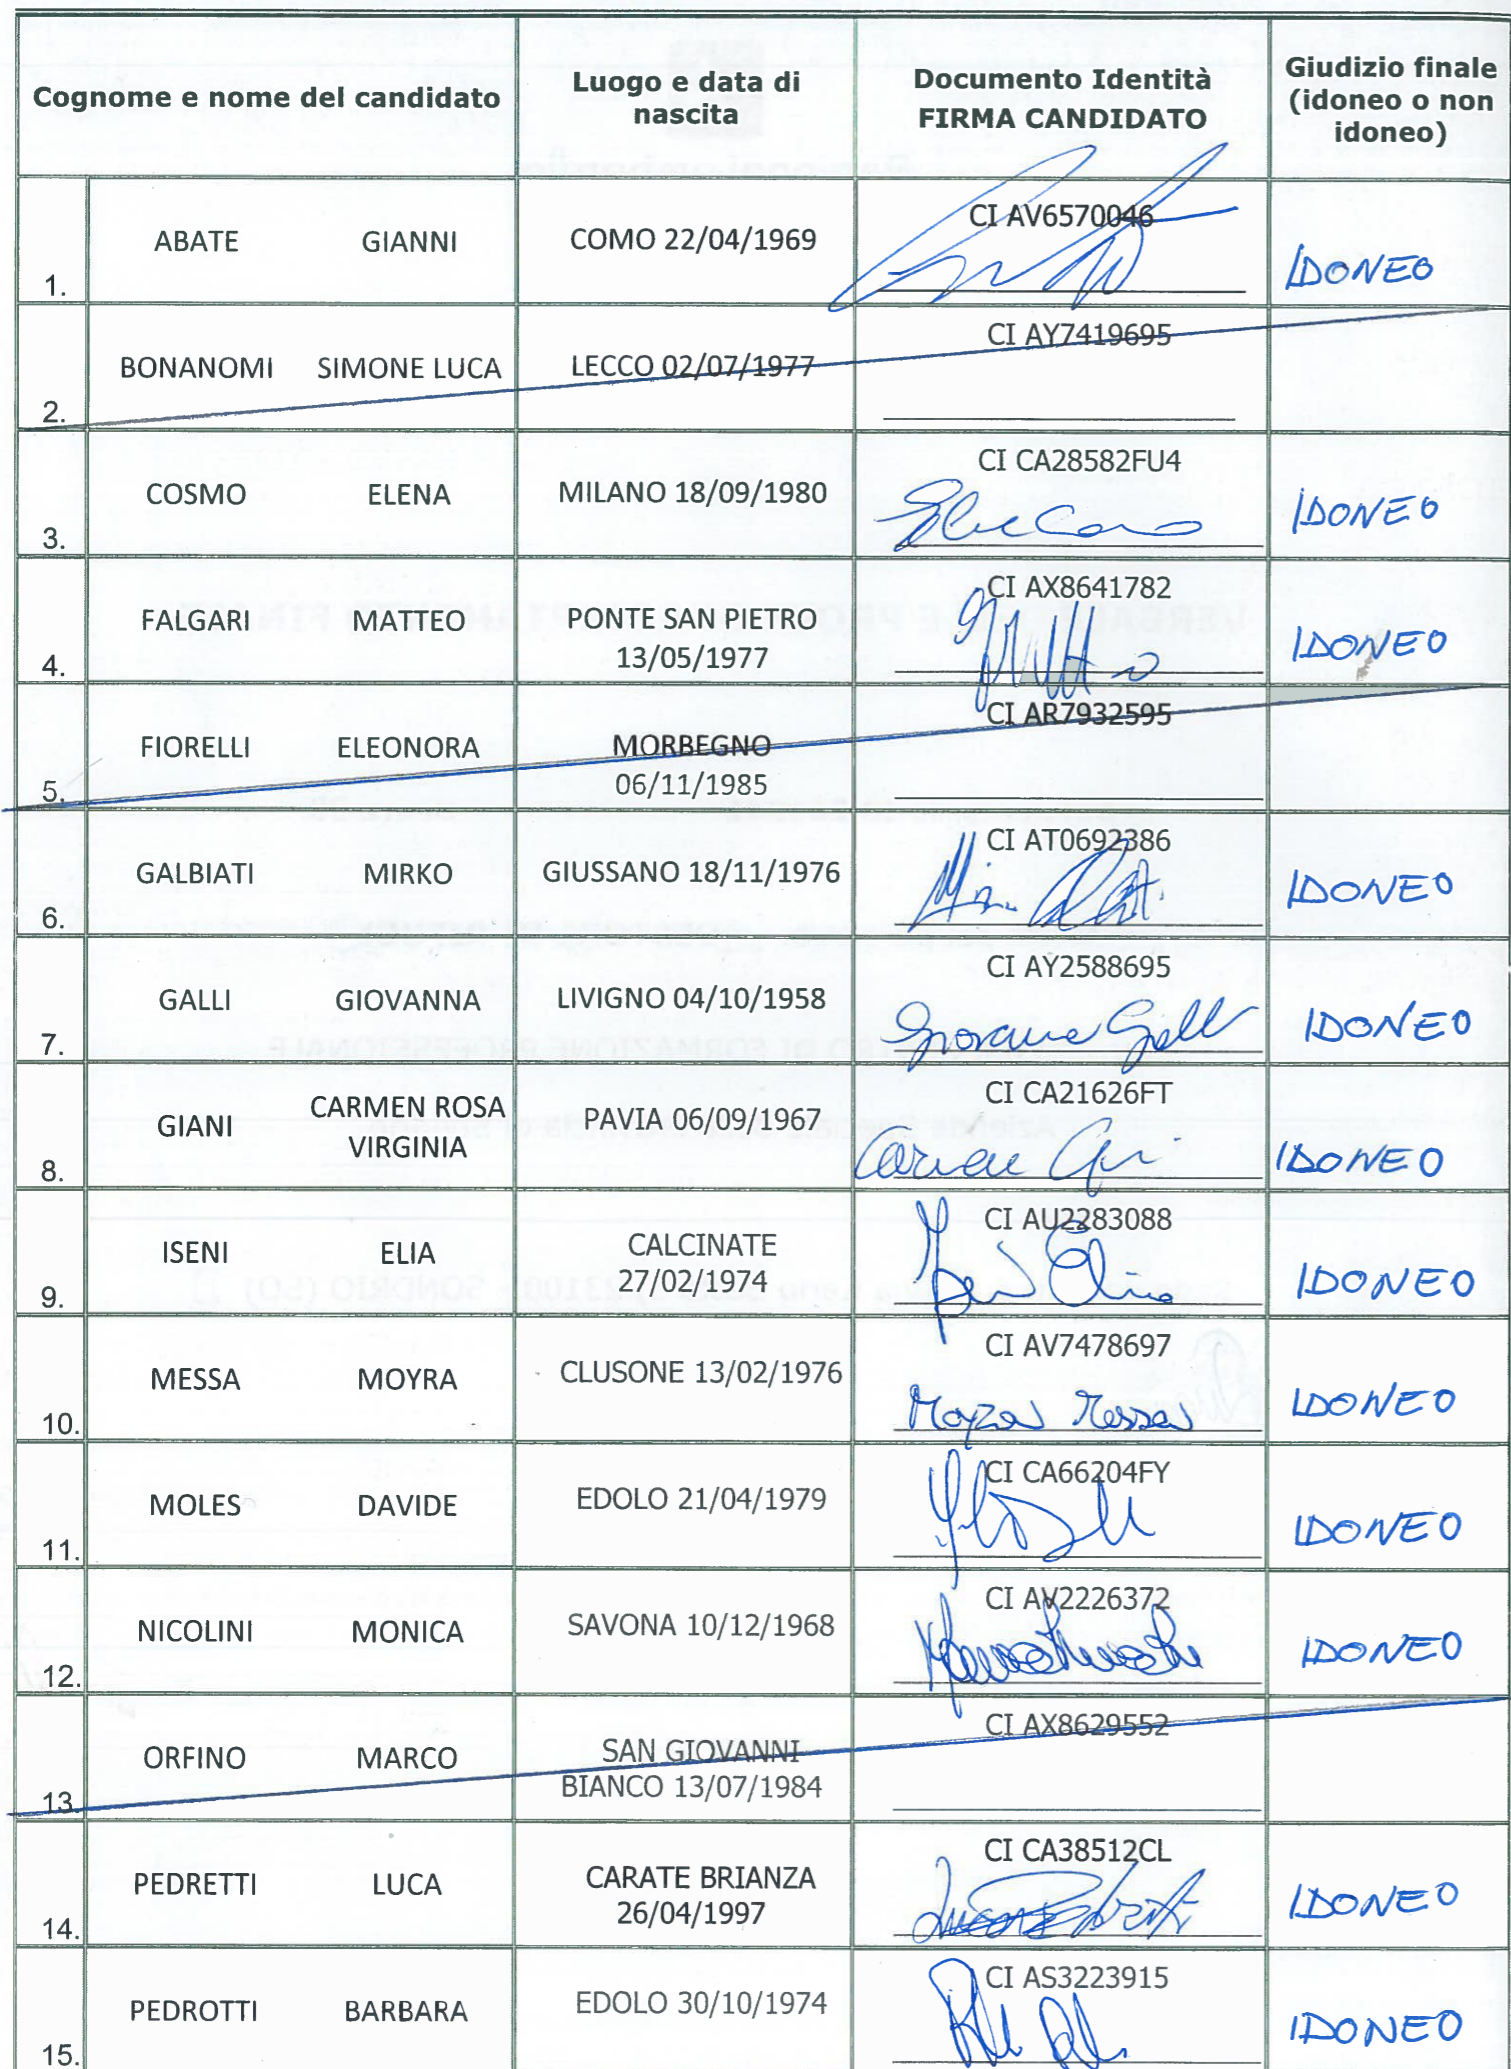 Cognome e nome del candidato
Luogo e data di
nascita
Documento Identità
FIRMA CANDIDATO
Giudizio finale
(idoneo o non
idoneo)
1. ABATE GIANNI COMO 22/04/1969 CI AV6570046 IDONEO
2. BONANOMI SIMONE LUCA LECCO 02/07/1977 CI AY7419695
3. COSMO ELENA MILANO 18/09/1980 CI CA28582FU4 IDONEO
4. FALGARI MATTEO PONTE SAN PIETRO
13/05/1977 CI AX8641782 IDONEO
5. FIORELLI ELEONORA MORBEGNO
06/11/1985 CI AR7932595
6. GALBIATI MIRKO GIUSSANO 18/11/1976 CI AT0692386 IDONEO
7. GALLI GIOVANNA LIVIGNO 04/10/1958 CI AY2588695 IDONEO
8. GIANI CARMEN ROSA
VIRGINIA PAVIA 06/09/1967 CI CA21626FT IDONEO
9. ISENI ELIA CALCINATE
27/02/1974 CI AU2283088 IDONEO
10. MESSA MOYRA CLUSONE 13/02/1976 CI AV7478697
Moyra Messa IDONEO
11. MOLES DAVIDE EDOLO 21/04/1979 CI CA66204FY IDONEO
12. NICOLINI MONICA SAVONA 10/12/1968 CI AV2226372 IDONEO
13. ORFINO MARCO SAN GIOVANNI
BIANCO 13/07/1984 CI AX8629552
14. PEDRETTI LUCA CARATE BRIANZA
26/04/1997 CI CA38512CL IDONEO
15. PEDROTTI BARBARA EDOLO 30/10/1974 CI AS3223915 IDONEO